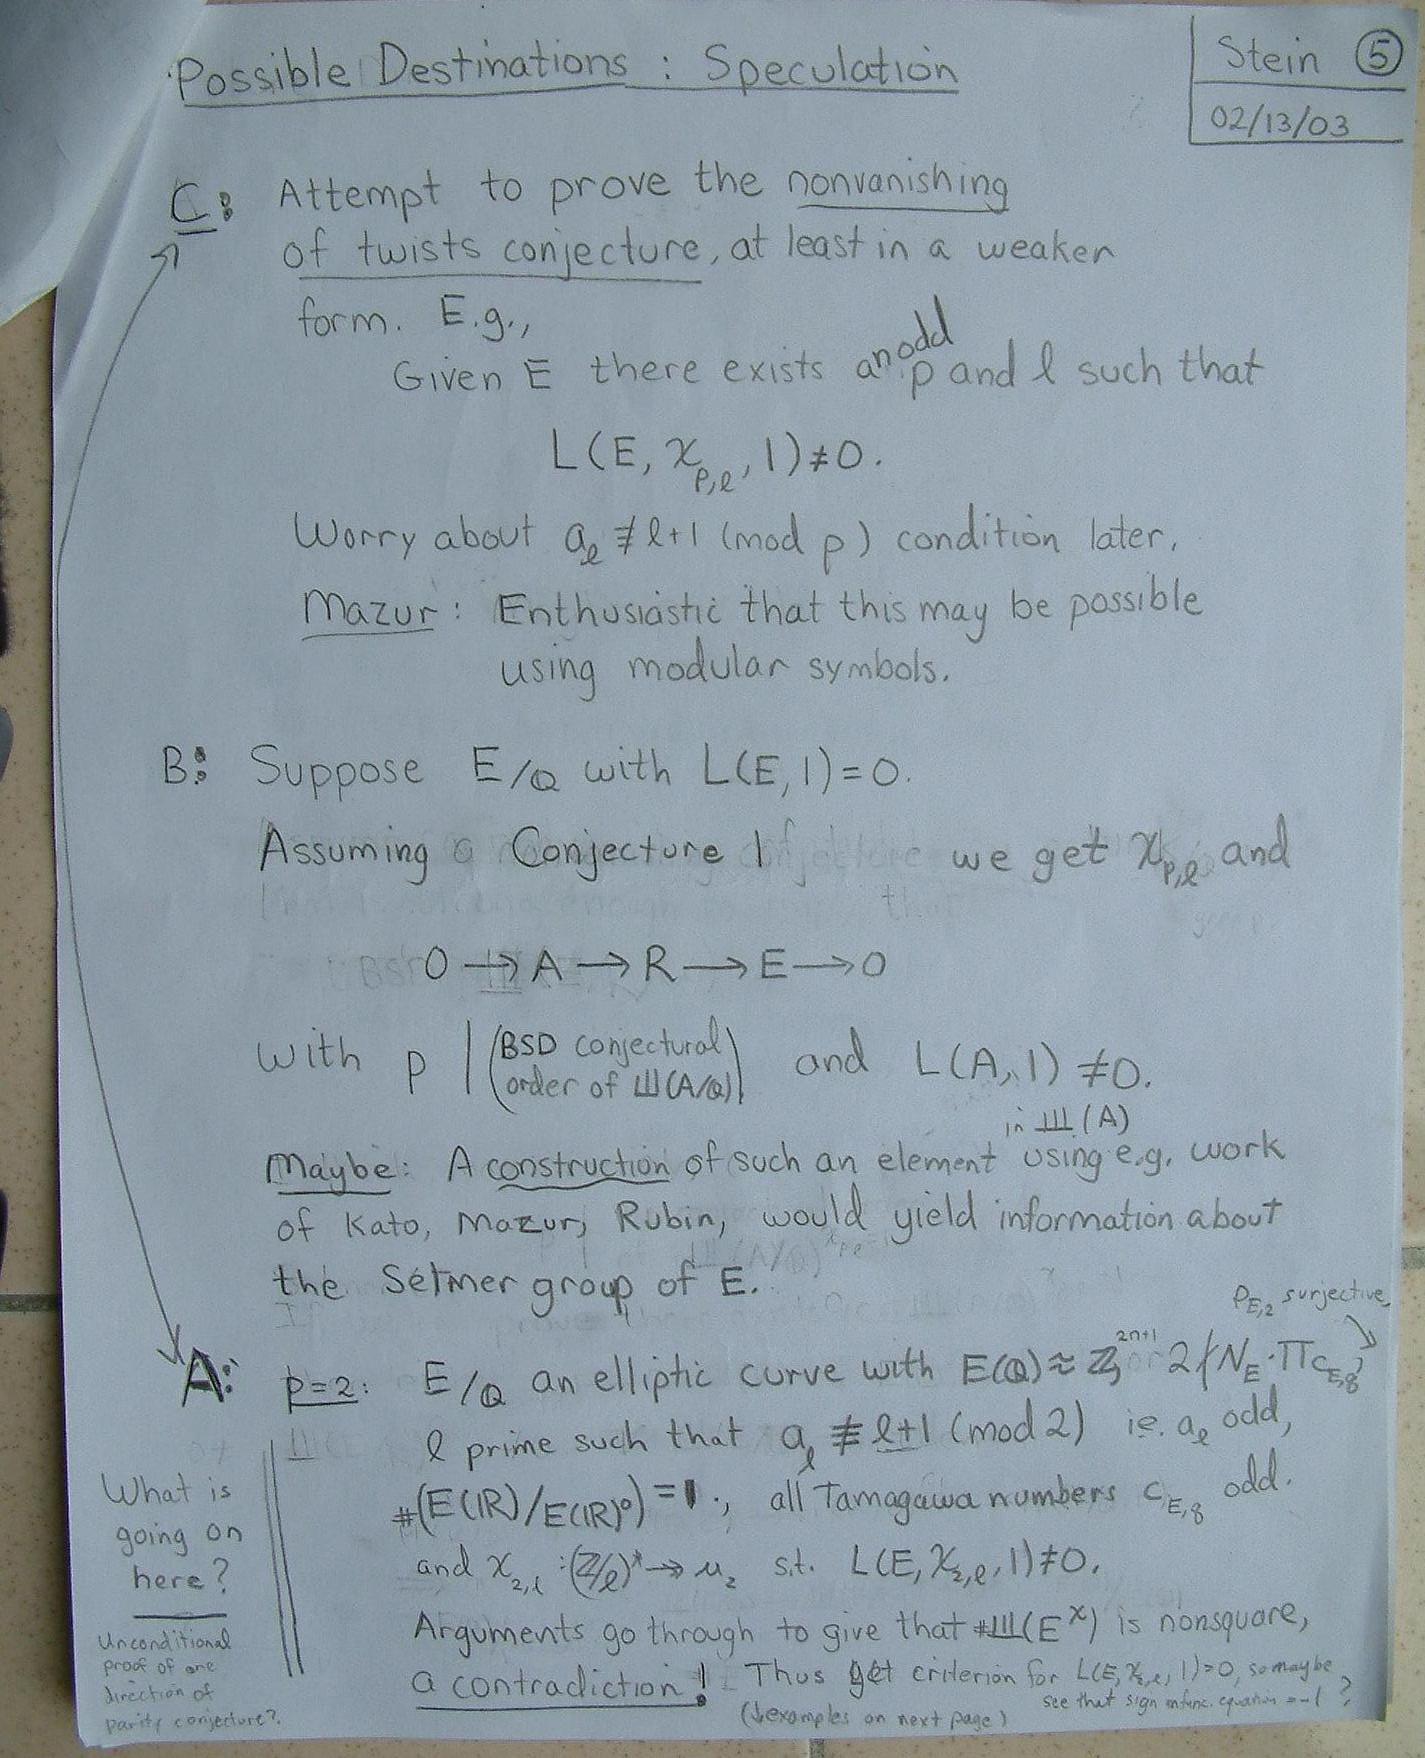 Possible Destinations : Speculation
Stein ⑤
02/13/03
C: Attempt to prove the nonvanishing
of twists conjecture, at least in a weaker
form. E.g.,
Given E there exists an odd p and l such that
L(E, χ_{p,ℓ}, 1) ≠ 0.
Worry about a_ℓ ≢ ℓ+1 (mod p) condition later.
Mazur: Enthusiastic that this may be possible
using modular symbols.
B: Suppose E/Q with L(E,1)=0.
Assuming Conjecture 1 we get χ_{p,ℓ} and
0 → A → R → E → 0
with p | (BSD conjectural order of Ш(A/Q)) and L(A,1) ≠ 0.
in Ш(A)
Maybe: A construction of such an element using e.g. work
of Kato, Mazur, Rubin, would yield information about
the Selmer group of E.
ρ_{E,2} surjective
A: p=2: E/Q an elliptic curve with E(Q) ≈ Z^{2n+1}, 2∤N_E·∏c_{E,q},
ℓ prime such that a_ℓ ≢ ℓ+1 (mod 2) ie. a_ℓ odd,
#(E(IR)/E(IR)⁰) = 1, all Tamagawa numbers c_{E,q} odd.
and χ_{2,ℓ} : (Z/ℓ)* ↠ μ_2 s.t. L(E, χ_{2,ℓ}, 1) ≠ 0.
Arguments go through to give that #Ш(E^χ) is nonsquare,
a contradiction! Thus get criterion for L(E, χ_{2,ℓ}, 1)=0, so maybe
see that sign in func. equation = -1 ?
(↓examples on next page)
What is
going on
here?
Unconditional
proof of one
direction of
parity conjecture?